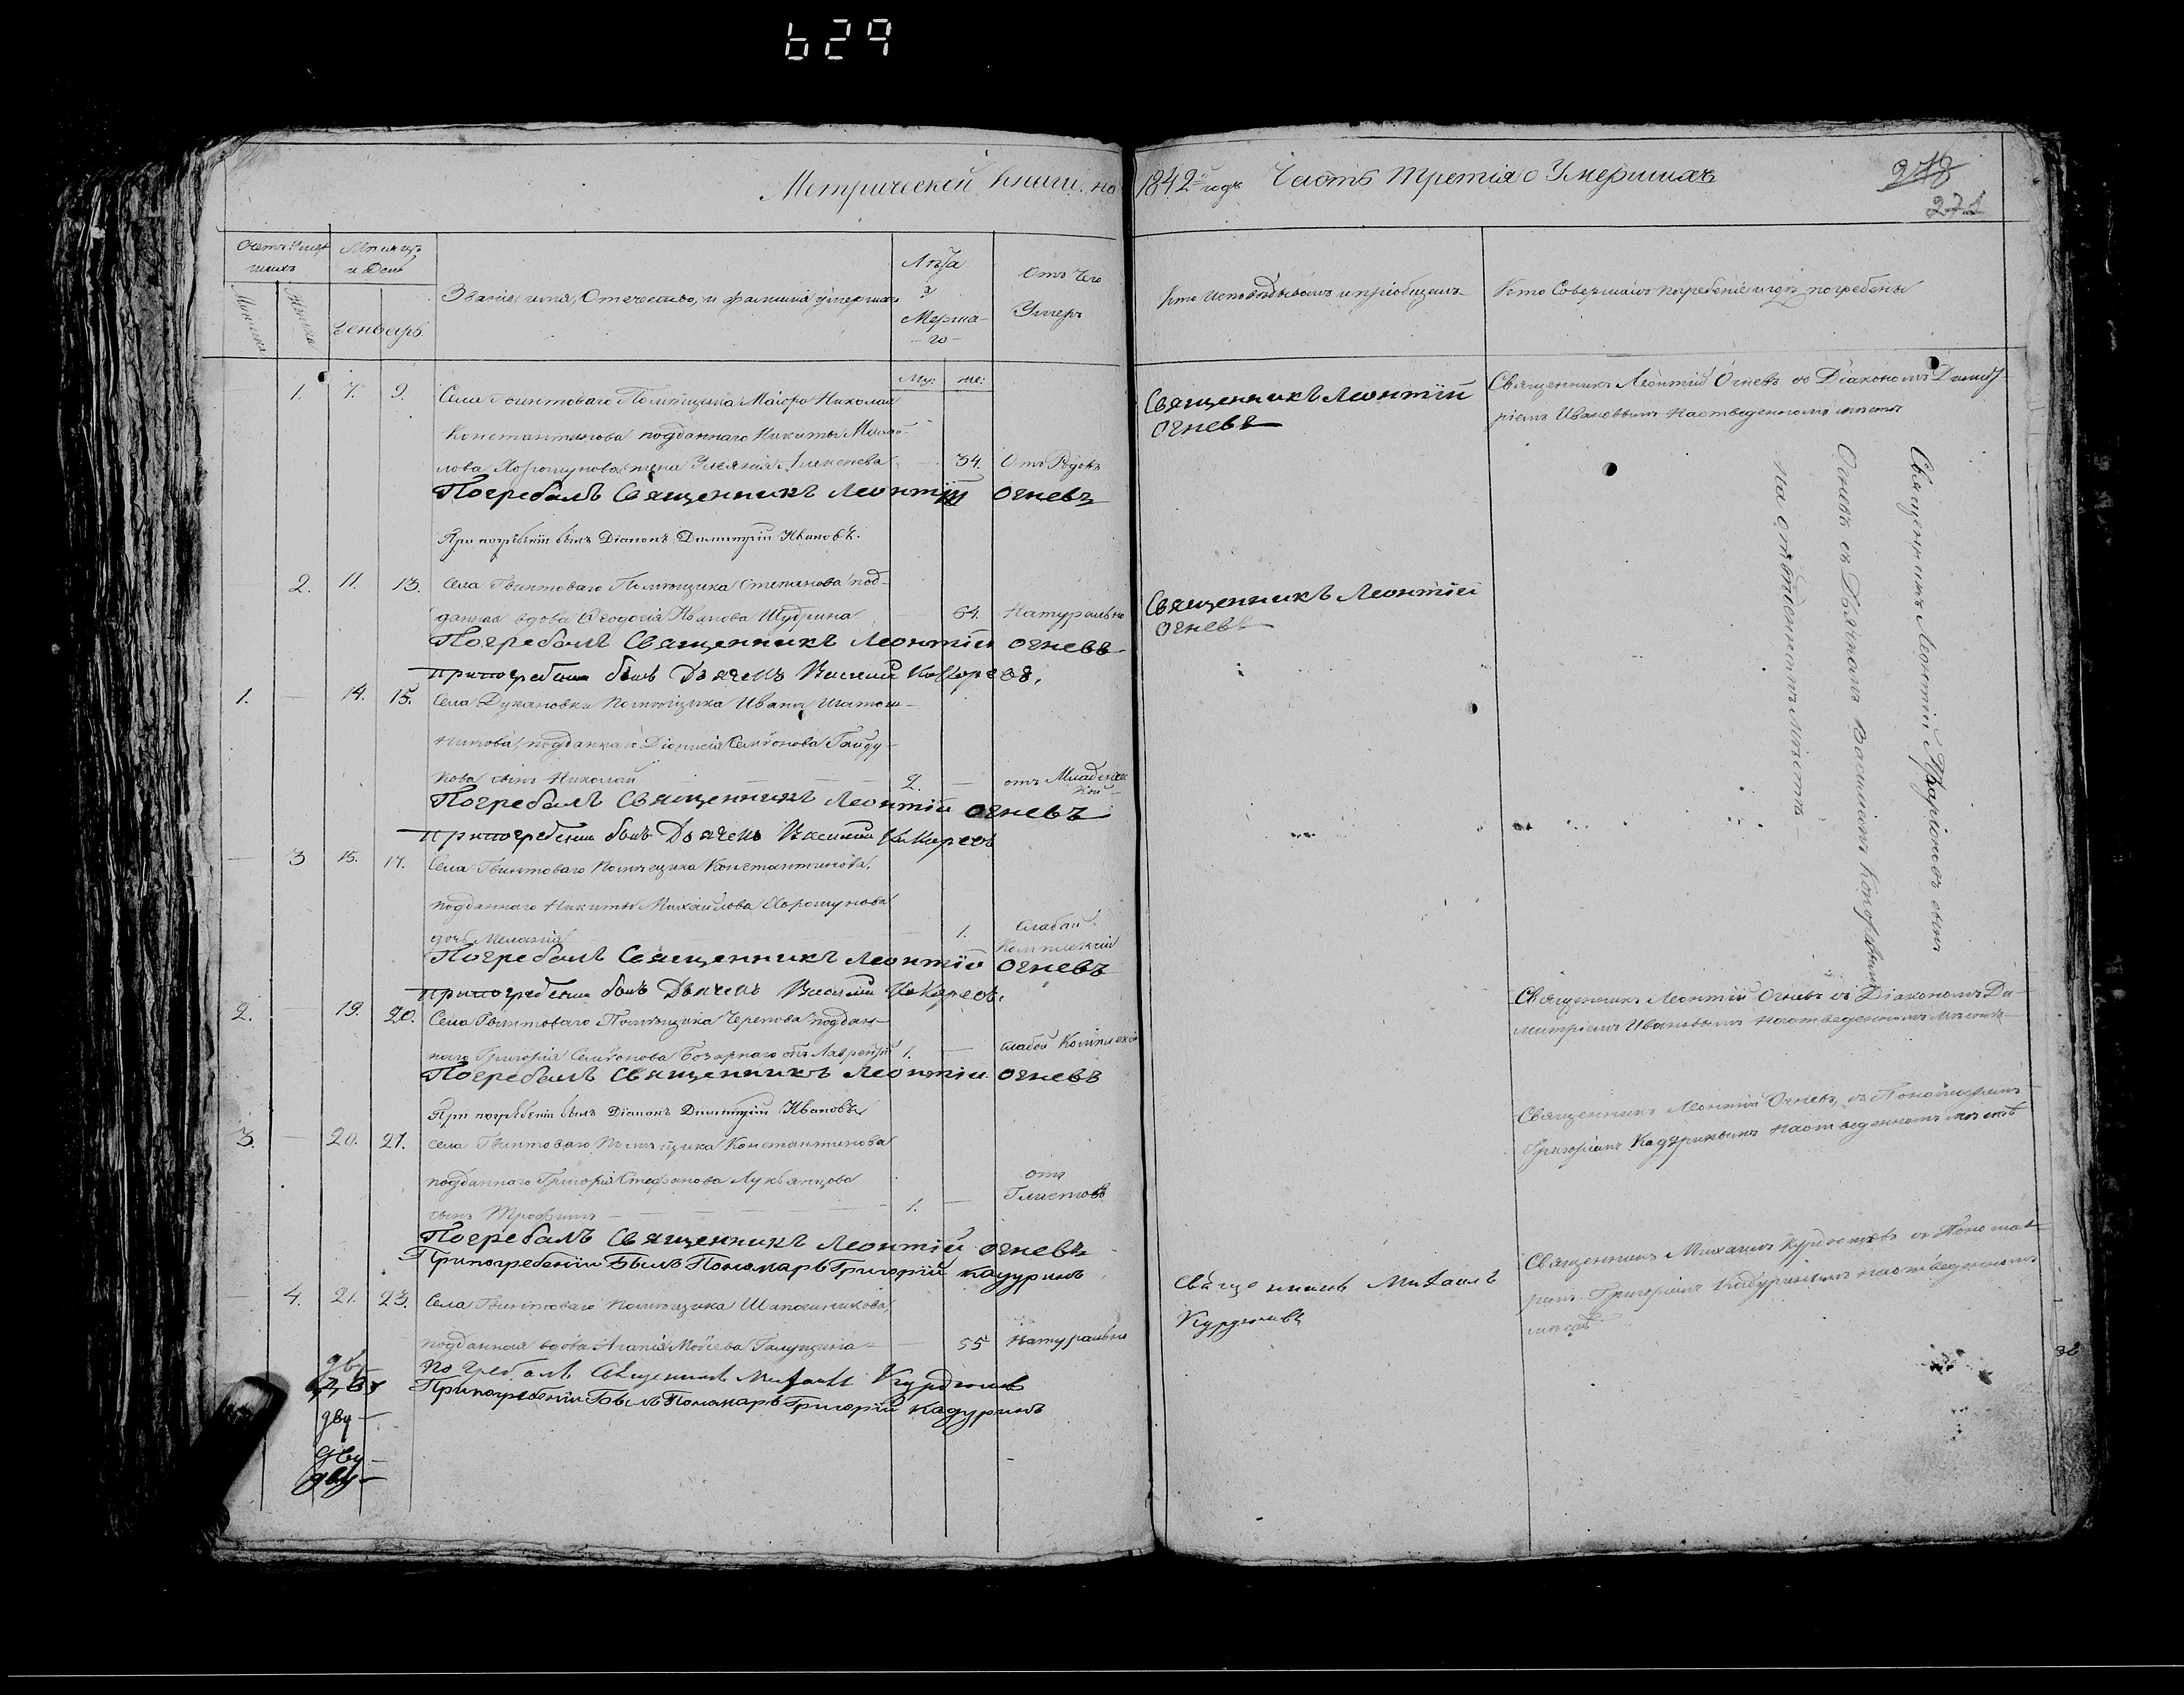 629
Метрической книги на 1842й годъ Часть третія о Умершихъ
278
271
Счетъ Умер
шихъ
Мѣсяцъ
и День
Званіе, имя, Отечество, и фамилія умершаго
Лѣта
у
Мерша-
-го-
Отъ чего
Умеръ
Кто Исповѣдывалъ и пріобщалъ
Кто Совершалъ погребеніе и гдѣ погребены
Мужеска
Женска
Генварь
Му: же:
1. 7. 9. Села Гвинтоваго Помѣщика Маіора Николая
Константинова подданнаго Никиты Михай-
лова Хорошунова жена 34. Отъ Родовъ
Погребалъ Священникъ Леонтій Огневъ
При погребеніи былъ Діаконъ Димитрій Ивановъ.
Священникъ Леонтій
Огневъ
Священникъ Леонтій Огневъ съ Діакономъ Димит-
ріемъ Ивановымъ на отведенномъ мѣстѣ
2. 11. 13. Села Гвинтоваго Помѣщика Степанова под-
данная вдова Ѳеодосія Иванова 64. Натурально
Погребалъ Священникъ Леонтій Огневъ
При погребеніи былъ Дьячекъ Василій
Священникъ Леонтій
Огневъ
Священникъ Леонтій
Огневъ съ Дьячкомъ Василіемъ
на отведенномъ мѣстѣ
1. — 14. 15. Села Дукановки помѣщика Ивана
подданнаго Діонисія Семіонова Гайду-
кова сынъ Николай 2. — отъ Младенчес
кой
Погребалъ Священникъ Леонтій Огневъ
При погребеніи былъ Дьячекъ Василій
— 3 15. 17. Села Гвинтоваго помѣщика Константинова,
подданнаго Никиты Михайлова Хорошунова
дочь Меланія 1. Слабой
Комплекціи
Погребалъ Священникъ Леонтій Огневъ
При погребеніи былъ Дьячекъ Василій
2. — 19. 20. Села Гвинтоваго Помѣщика Черепова поддан-
наго Григорія Семіонова сынъ Лаврентій 1. — слабой Комплекціи
Погребалъ Священникъ Леонтій Огневъ
При погребеніи былъ Діаконъ Димитрій Ивановъ
Священникъ Леонтій Огневъ съ Діакономъ Ди-
митріемъ Ивановымъ на отведенномъ мѣстѣ
3. — 20. 21. Села Гвинтоваго помѣщика Константинова
подданнаго Григорія Стефанова Лукьянцова
сынъ Трофимъ 1. — отъ
Глистовъ
Погребалъ Священникъ Леонтій Огневъ
При погребеніи Былъ Пономарь Григорій Кадуринъ
Священникъ Леонтій Огневъ съ Пономаремъ
Григоріемъ Кадуринымъ на отведенномъ мѣстѣ
— 4. 21. 23. Села Гвинтоваго помѣщика Шапошникова,
подданная вдова Агапія Мойсеева 55 Натурально
Погребалъ Священникъ Михаилъ Курдюмовъ
При погребеніи Былъ Пономарь Григорій Кадуринъ
Священникъ Михаилъ
Курдюмовъ
Священникъ Михаилъ Курдюмовъ съ Понома-
ремъ Григоріемъ Кадуринымъ на отведенномъ
мѣстѣ